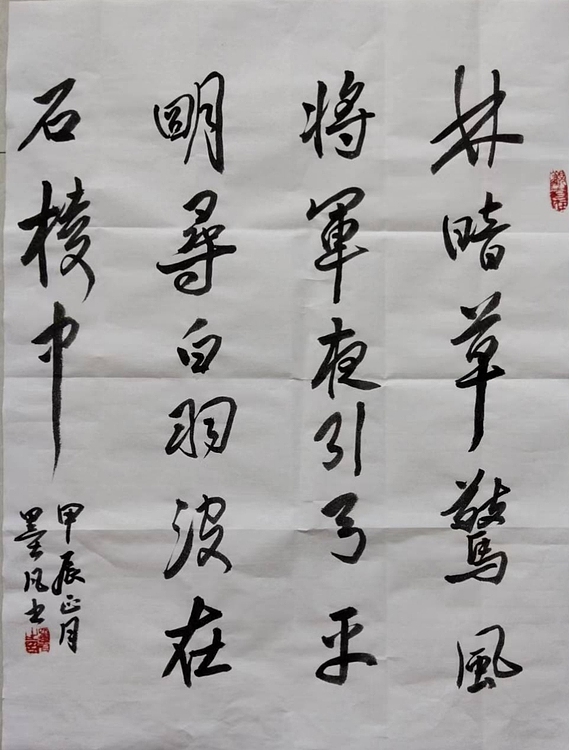 林暗草驚風
將軍夜引弓平
明尋白羽没在
石棱中
甲辰正月
墨凡书